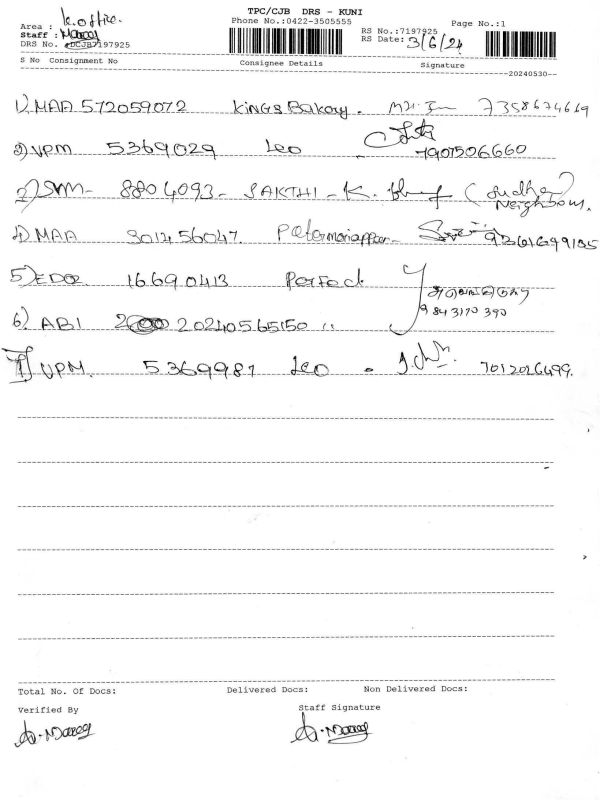 TPC/CJB DRS - KUNI
Area : K.office.
Phone No.:0422-3505555
Page No.:1
Staff :
RS No.:7197925
DRS No. DCJB7197925
RS Date: 3/6/24
S No Consignment No Consignee Details Signature
20240530--
1) MAA 572059072 KINGS Bakery. 7358674669
2) VPM 5369029 Leo 7907506660
3) SVM- 8804093- SAKTHI - K. (Sudha) Neighbour.
4) MAA 301456047. Petermariappan- 9361649185
5) EDQ 16690413 Perfect
9843170390
6) ABI 20240565150 ''
7) VPM. 5369987 Leo - 7012026499.
Total No. Of Docs: Delivered Docs: Non Delivered Docs:
Verified By Staff Signature